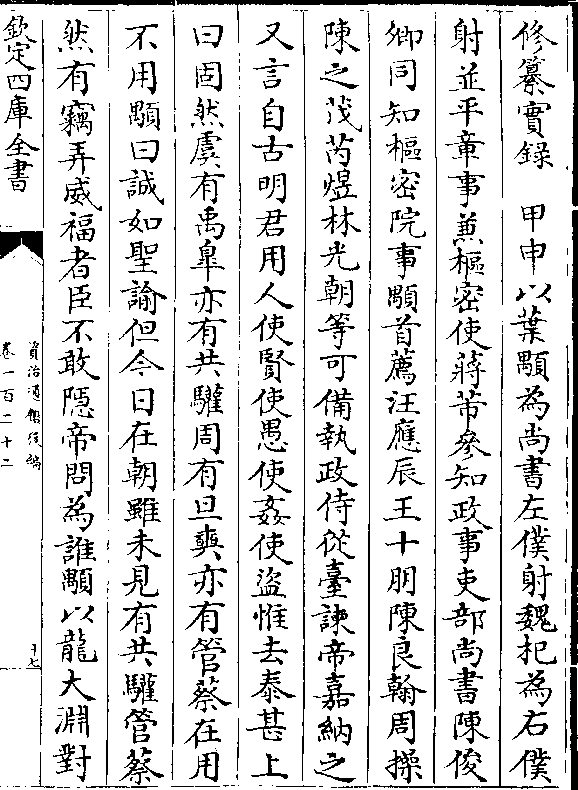 修纂實録　甲申以葉顒為尚書左僕射魏杞為右僕
射並平章事兼樞密使蔣芾參知政事吏部尚書陳俊
卿同知樞密院事顒首薦汪應辰王十朋陳良翰周操
陳之茂芮煜林光朝等可備執政侍從臺諫帝嘉納之
又言自古明君用人使賢使愚使姦使盜惟去泰甚上
曰固然虞有禹臯亦有共驩周有旦奭亦有管蔡在用
不用顒曰誠如聖諭但今日在朝雖未見有共驩管蔡
然有竊弄威福者臣不敢隱帝問為誰顒以龍大淵對
欽定四庫全書
資治通鑑後編
卷一百二十二
十七